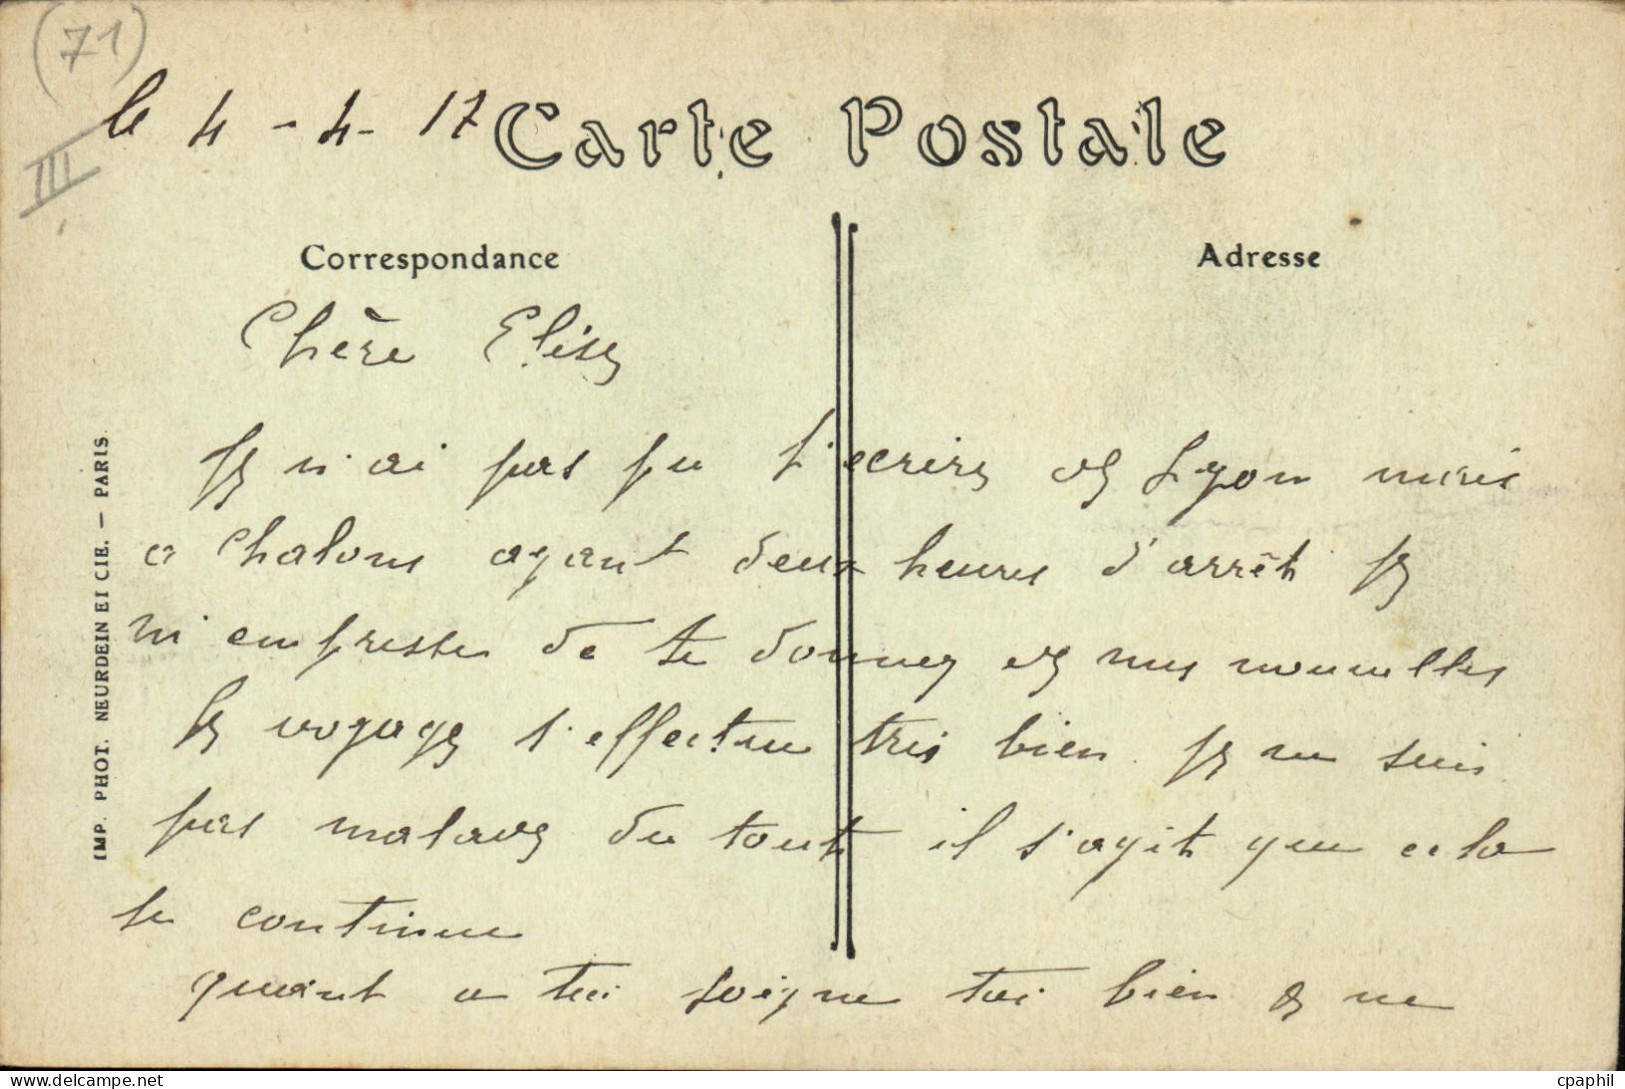 (71)
III
le 4-4-17
Carte Postale
Correspondance
Adresse
Chère Elise
Je n'ai pas pu t'ecrire de Lyon mais
a Chalons ayant deux heures d'arrêt je
m'empresse de te donner de mes nouvelles
le voyage s'effectue très bien je ne suis
pas malade du tout il s'agit que cela
se continue
quant a toi soigne toi bien & ne
IMP. PHOT. NEURDEIN ET CIE. — PARIS.
cpaphil